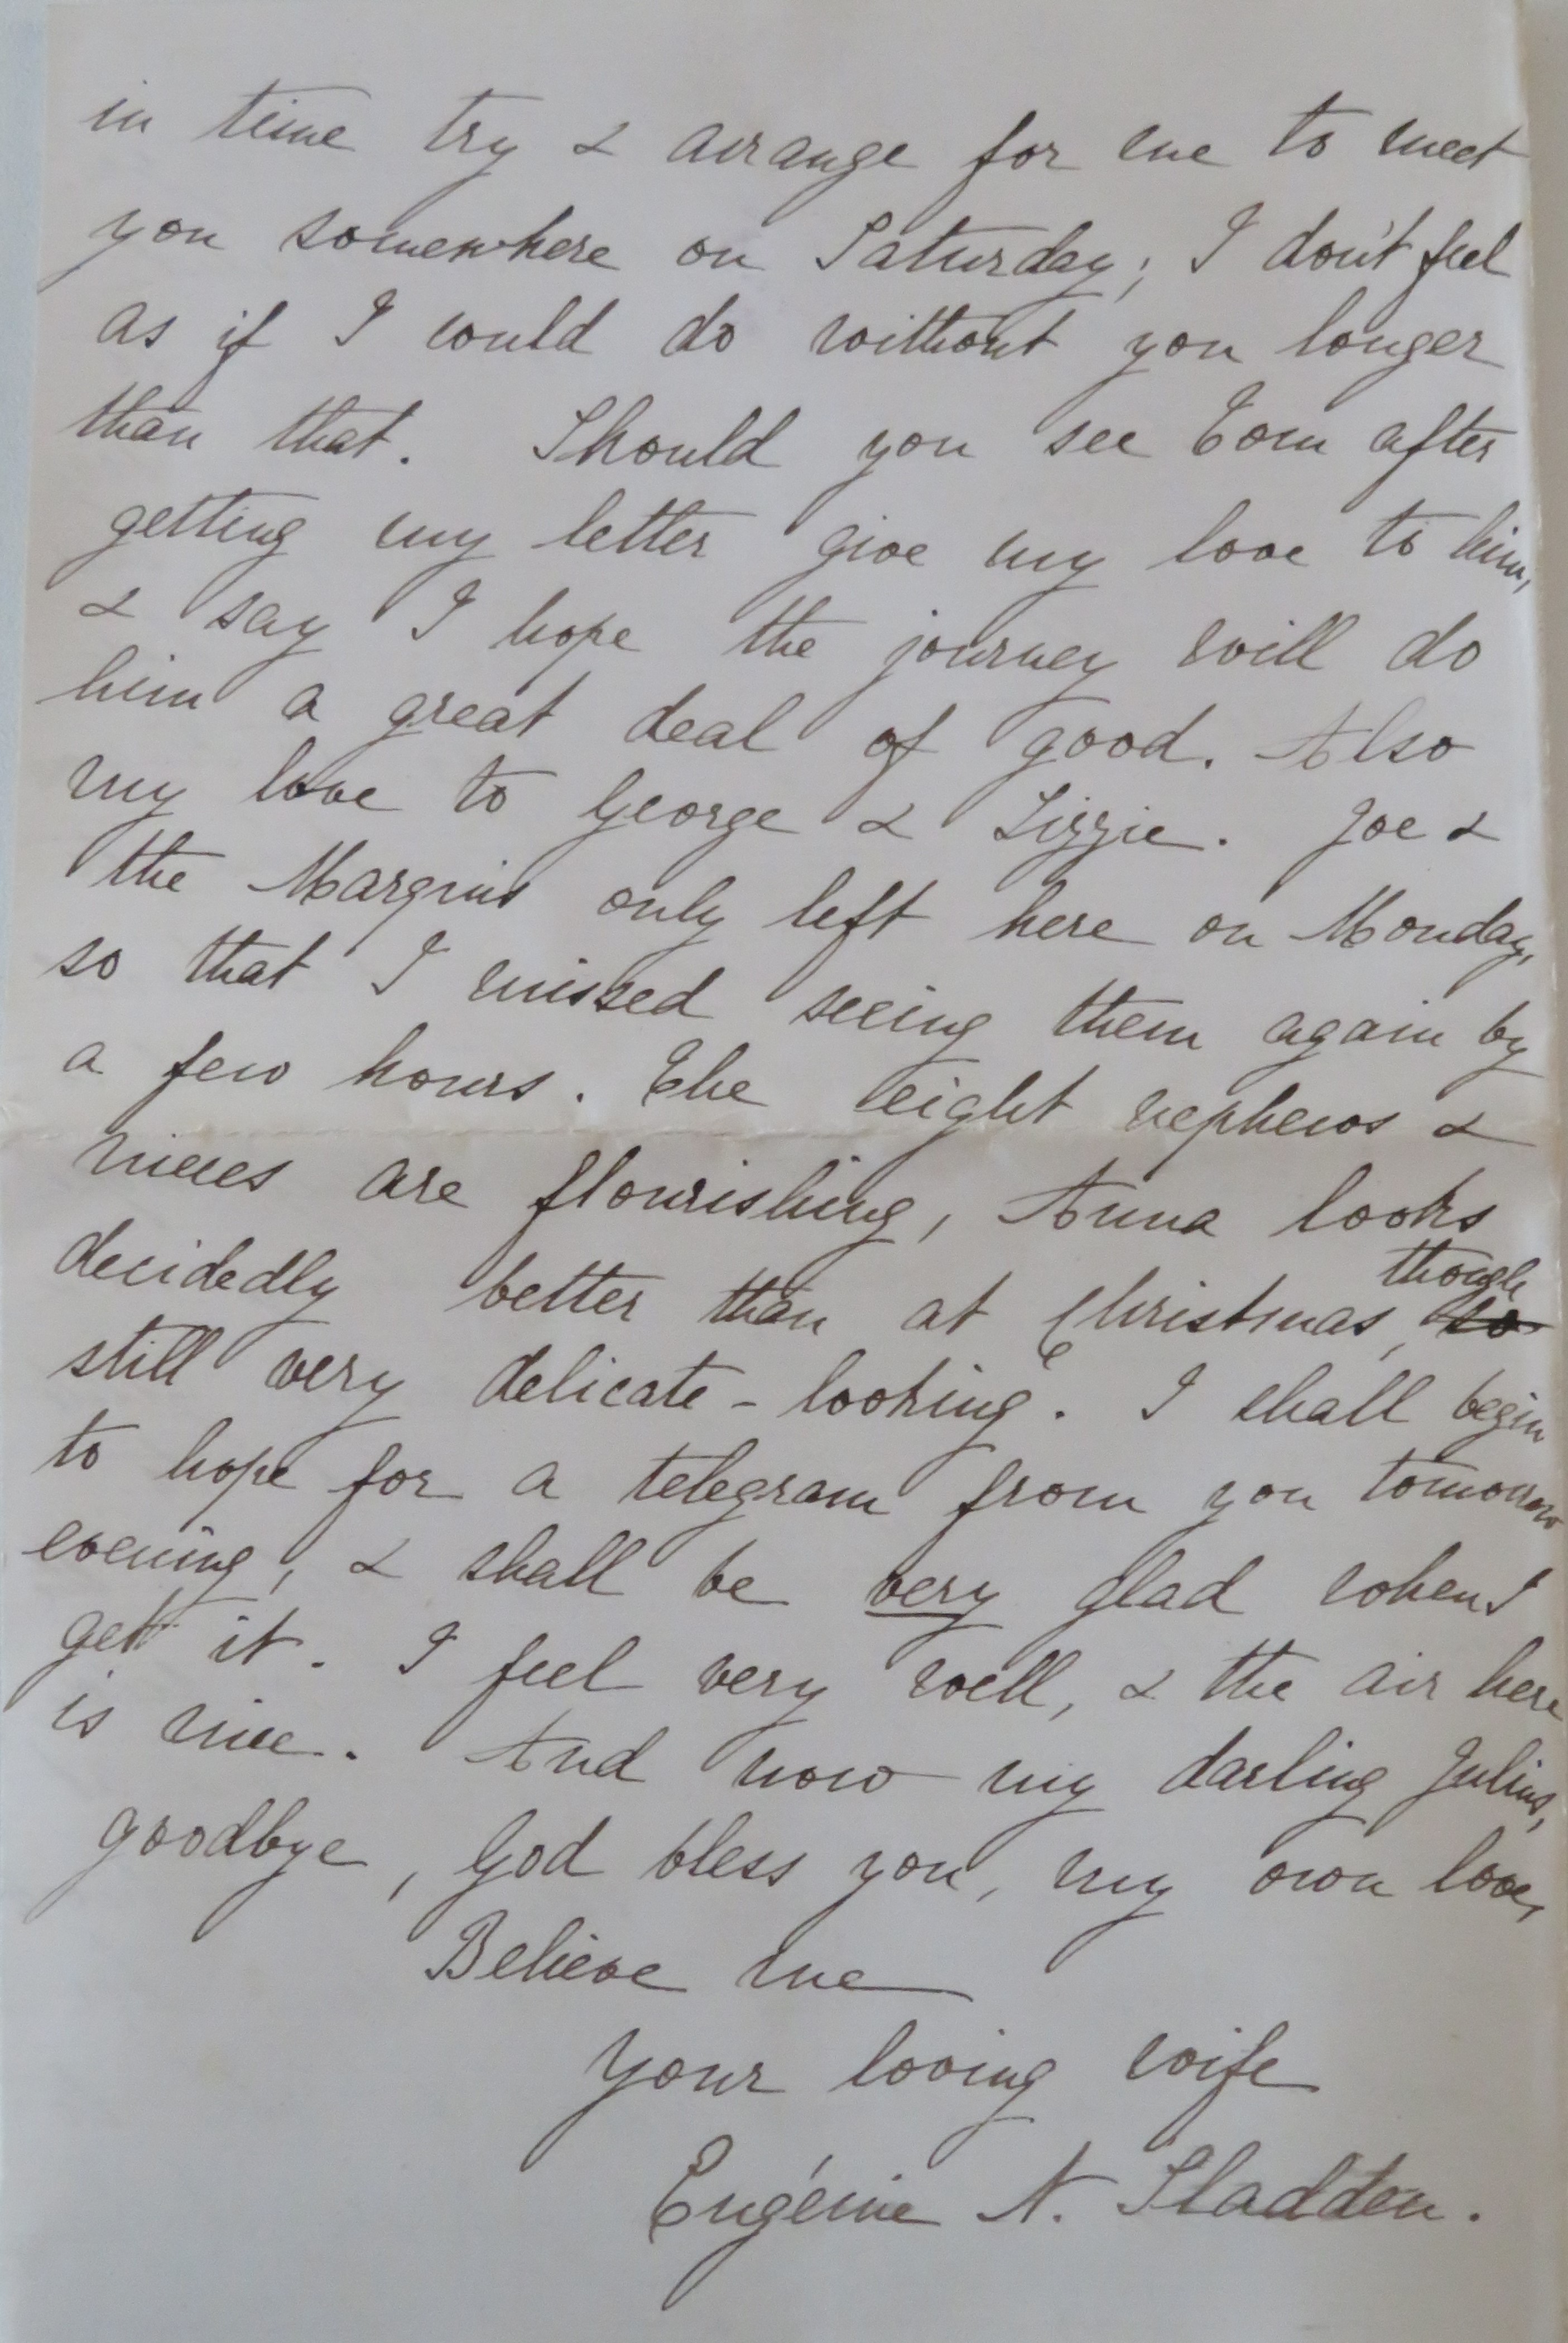 in time try & arrange for me to meet
you somewhere on Saturday; I don't feel
as if I could do without you longer
than that. Should you see Tom after
getting my letter give my love to him,
& say I hope the journey will do
him a great deal of good. Also
my love to George & Lizzie. Joe &
the Marquis only left here on Monday,
so that I missed seeing them again by
a few hours. The eight nephews &
nieces are flourishing, Anna looks
decidedly better than at Christmas, though so
still very delicate-looking. I shall begin
to hope for a telegram from you tomorrow
evening, & shall be very glad when I
get it. I feel very well, & the air here
is nice. And now my darling Julius,
goodbye, God bless you, my own love,
Believe me
your loving wife
Eugénie N. Sladden.